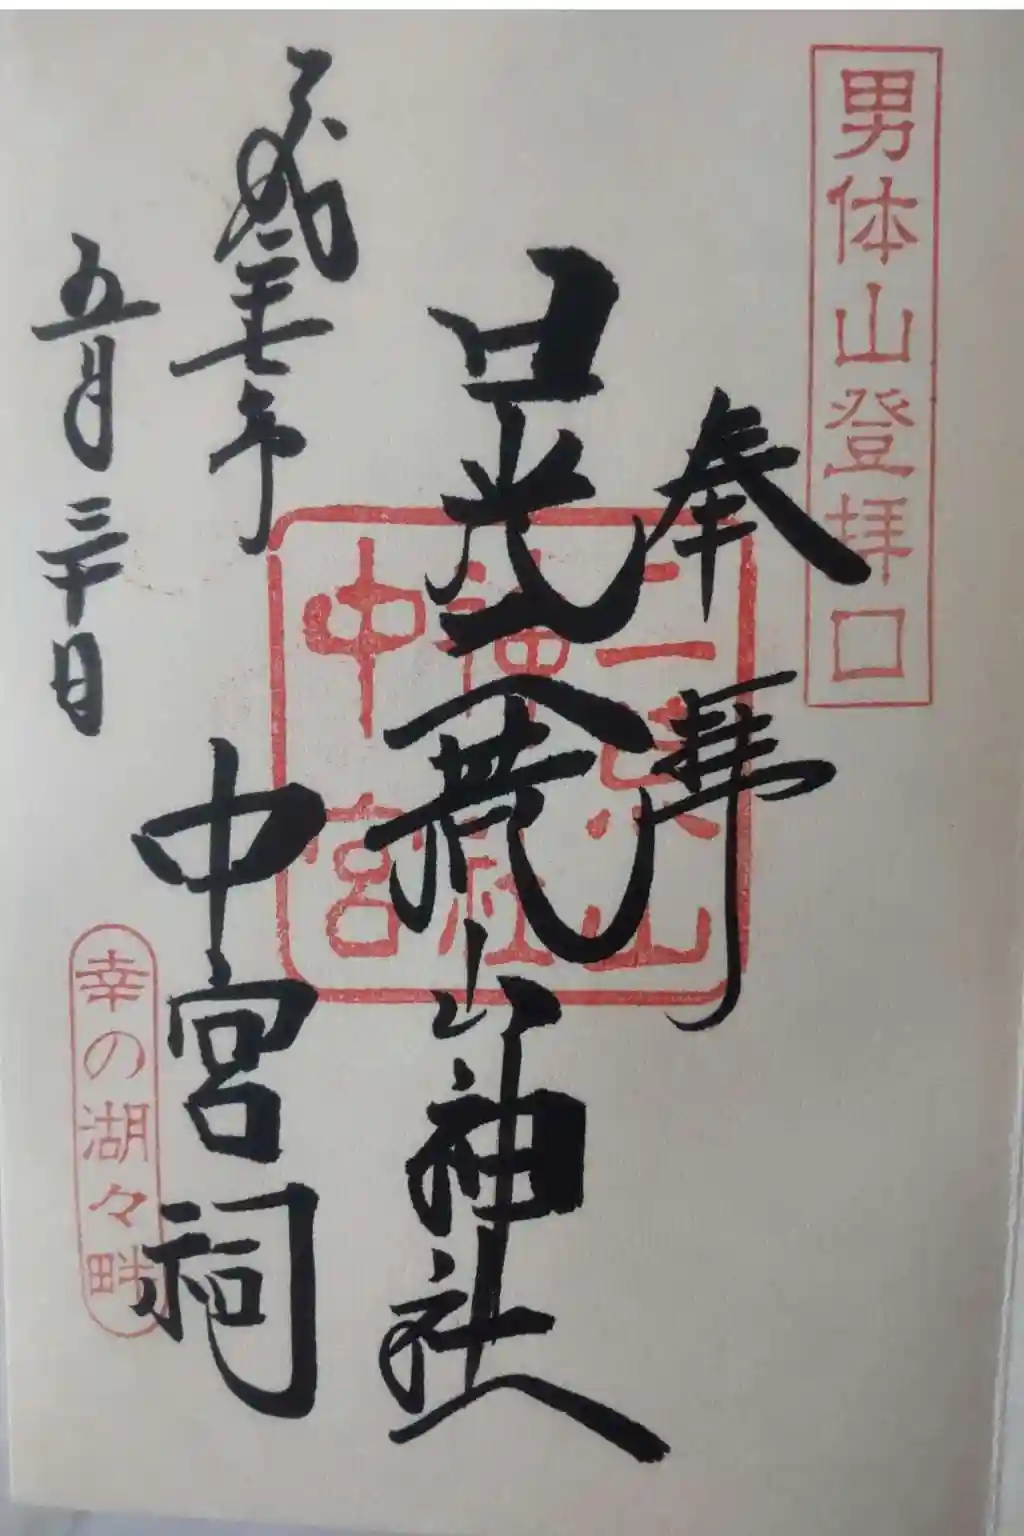 男体山登拝口
奉拝
日光二荒山神社
中宮祠
平成二十七年
五月三十日
二荒山
神社
中宮
幸の湖々畔